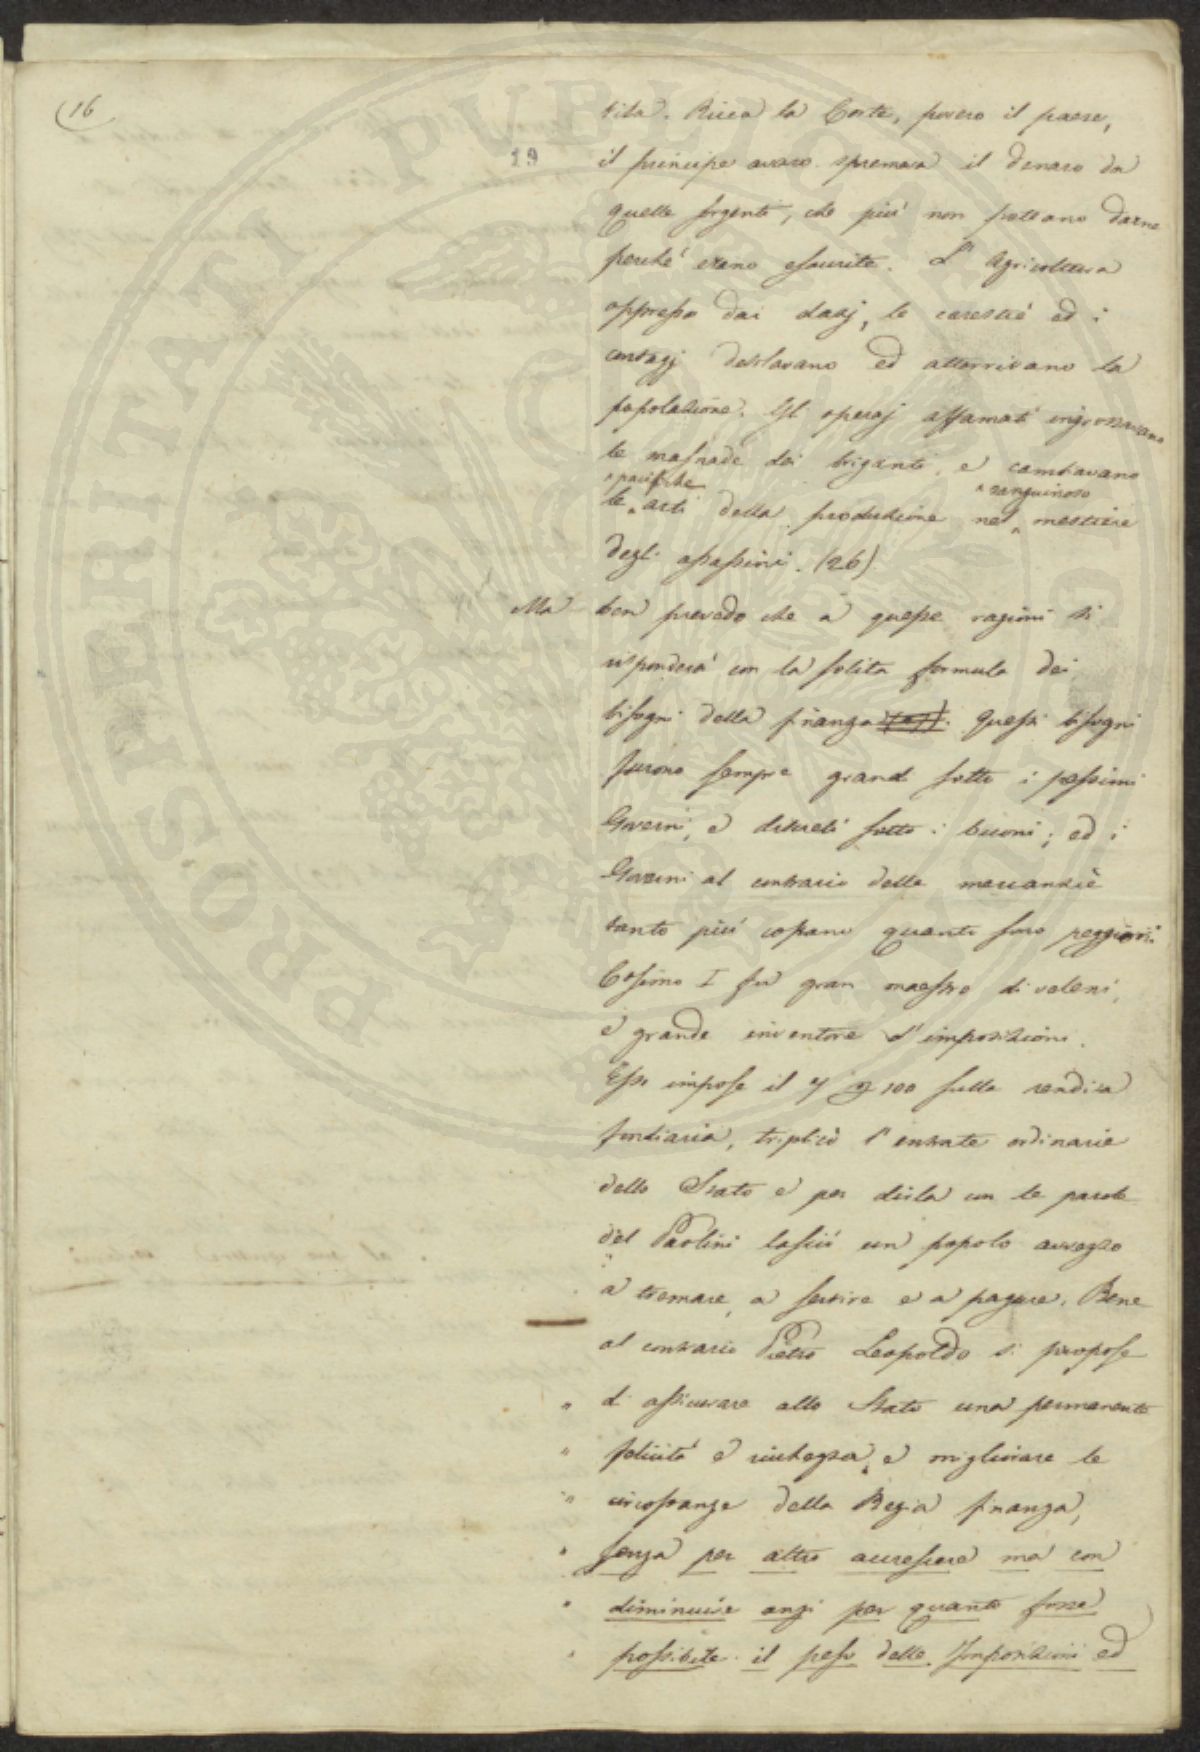 (16
19
sita. Ricca la Corte, povero il paese,
il principe avaro spremeva il denaro da
quelle sorgenti, che più non poteano darne
perchè erano esaurite. L'Agricoltura
oppressa dai dazj, le carestie ed i
contagj desolavano ed atterrivano la
popolazione. Gl'operaj affamati ingrossavano
le masnade dei briganti, e cambiavano
le pacifiche arti della produzione nel sanguinoso mestiere
degli assassini. (26)
Ma ben prevedo che a queste ragioni si
risponderà con la solita formula dei
bisogni della finanza. Questi bisogni
furono sempre grandi sotto i pessimi
Governi, e discreti sotto i buoni; ed i
Governi al contrario delle mercanzie
tanto più costano quanto sono peggiori.
Cosimo I fu gran maestro di veleni,
e grande inventore d'imposizioni.
Esso impose il 7 p 100 sulla rendita
fondiaria, triplicò l'entrate ordinarie
dello Stato e per dirla con le parole
del Paolini lasciò un popolo avvezzo
a tremare, a servire e a pagare. Bene
al contrario Pietro Leopoldo si propose
" di assicurare allo Stato una permanente
" felicità e ricchezza, e migliorare le
" circostanze della Regia finanza,
" senza per altro accrescere ma con
" diminuire anzi per quanto fosse
" possibile il peso delle Imposizioni ed
PROSPERITATI PUBLICAE AUGENDAE